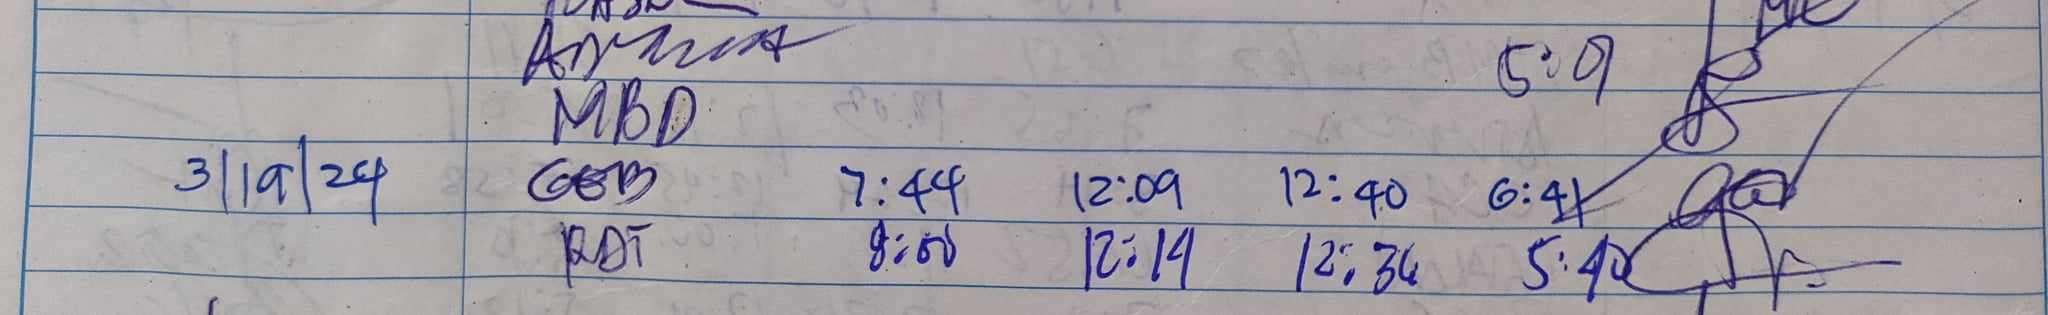 5:9
MBD
3/19/24 GEB 7:44 12:09 12:40 6:41
RDT 8:00 12:14 12:36 5:40